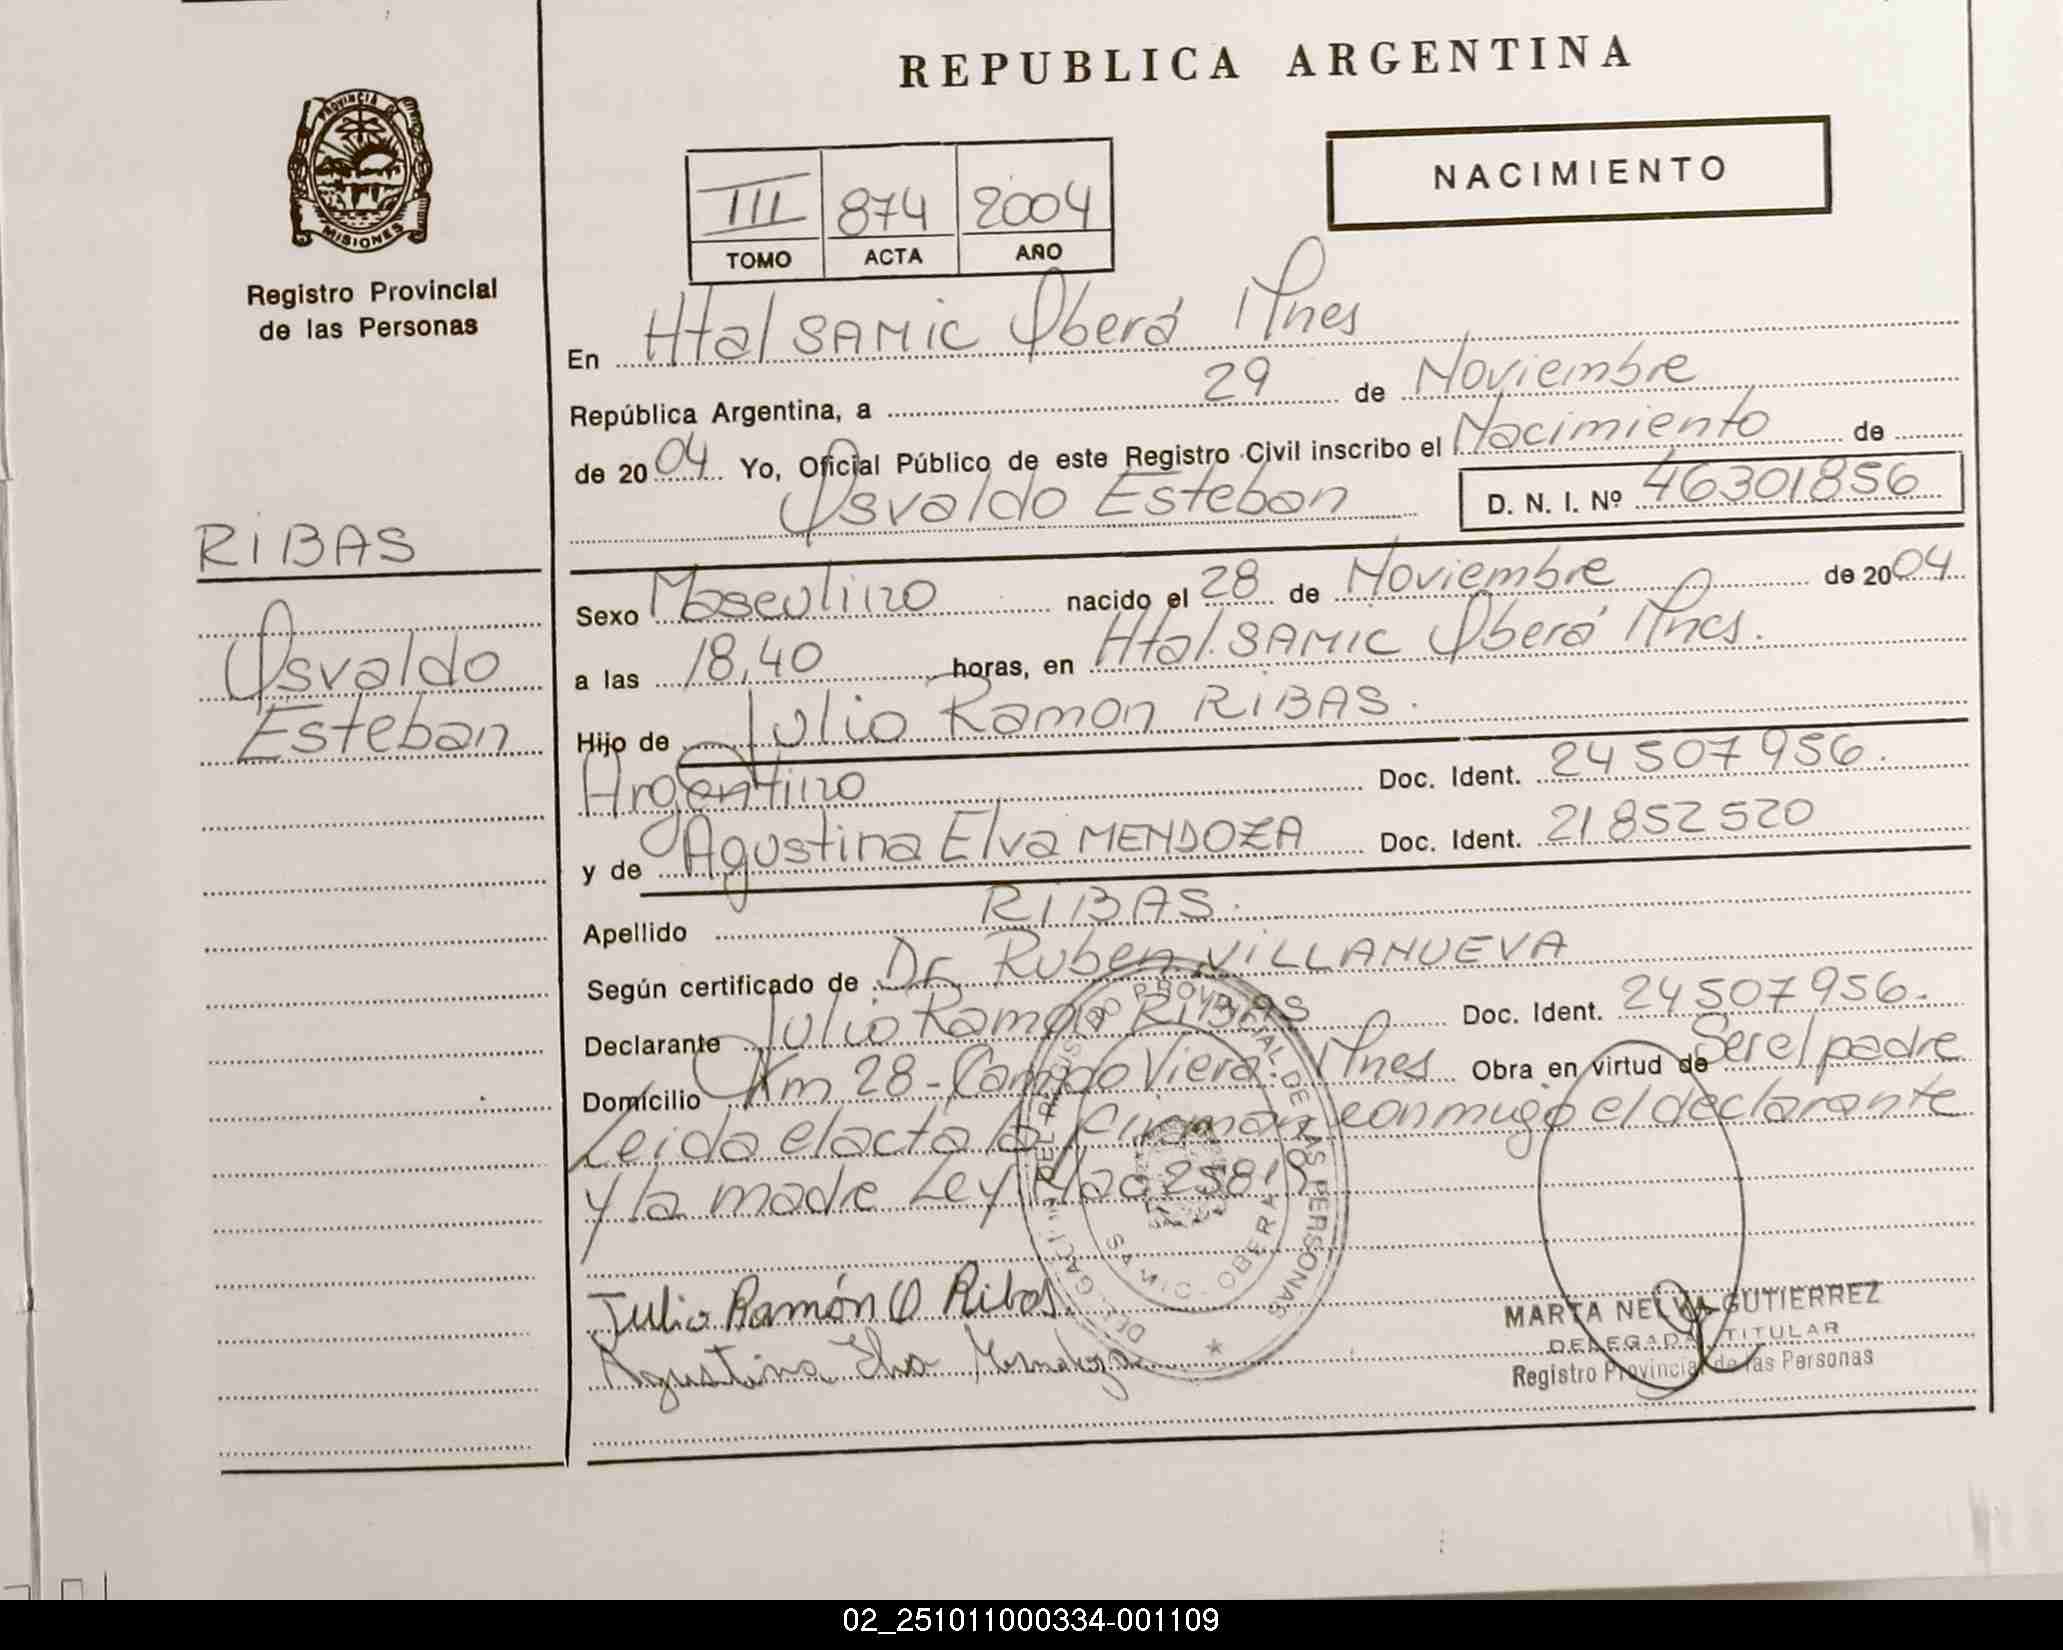 REPUBLICA ARGENTINA
PROVINCIA DE
MISIONES
Registro Provincial
de las Personas
NACIMIENTO
III 874 2004
TOMO ACTA AÑO
En Htal SAMIC Oberá Mnes
República Argentina, a 29 de Noviembre
de 2004 Yo, Oficial Público de este Registro Civil inscribo el Nacimiento de
Osvaldo Esteban D. N. I. Nº 46301856
RIBAS
Osvaldo
Esteban
Sexo Masculino nacido el 28 de Noviembre de 2004
a las 18,40 horas, en Htal. SAMIC Oberá Mnes.
Hijo de Julio Ramon RIBAS.
Argentino Doc. Ident. 24507956.
y de Agustina Elva MENDOZA Doc. Ident. 21852520
Apellido RIBAS.
Según certificado de Dr Ruben VILLANUEVA
Declarante Julio Ramon RIBAS Doc. Ident. 24507956.
Domicilio Km 28 - Campo Viera. Mnes Obra en virtud de Ser el padre
Leida el acta la firman conmigo el declarante
y la madre Ley Nac 25819
Julio Ramón O Ribas.
Agustina Elva Mendoza
DEL REGISTRO PROVINCIAL DE LAS PERSONAS
SAMIC - OBERA
MARTA NELVA GUTIERREZ
DELEGADA TITULAR
Registro Provincial de las Personas
02_251011000334-001109